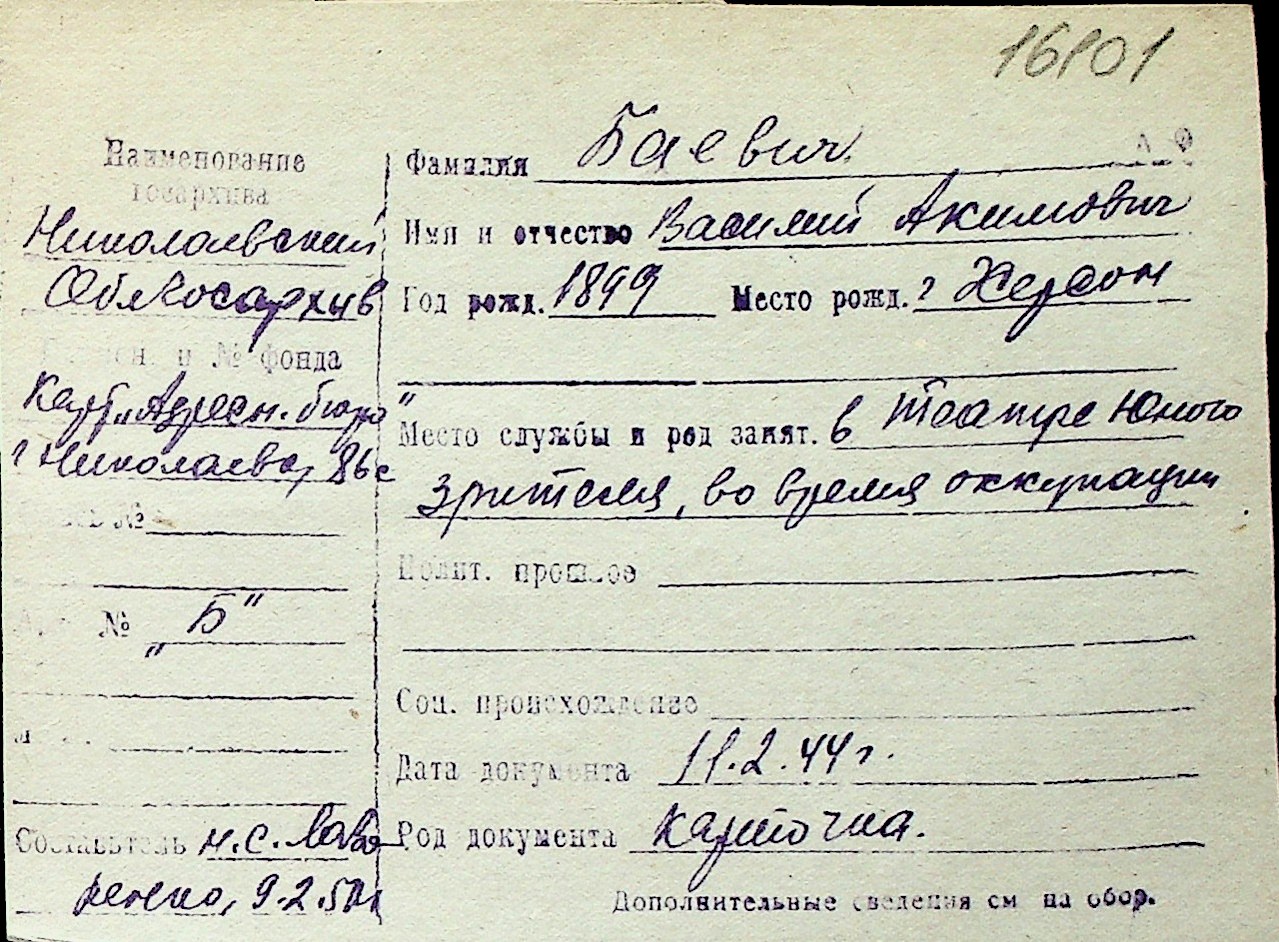 16101
Наименование
госархива
Николаевский
Облгосархив
и № фонда
Карт. „Адресн. бюро"
г Николаева, 86с
№
№ „Б"
Составитель Н.С. Лав
ренко, 9.2.50г
Фамилия Баевич
Имя и отчество Василий Акимович
Год рожд. 1899 Место рожд. г Херсон
Место службы и род занят. в театре Юного
зрителя, во время оккупации
Полит. прошлое
Соц. происхождение
Дата документа 11.2.44г.
Род документа карточка.
Дополнительные сведения см на обор.